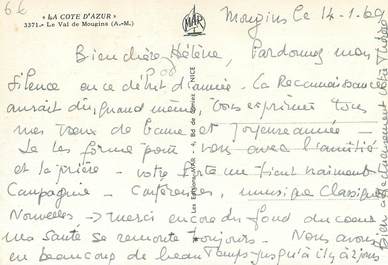 66
"LA COTE D'AZUR"
3371. - Le Val de Mougins (A.-M.)
MAR
Mougins le 14-1.69
Bien chère Hélène, Pardonnez mon
silence en ce début d'année - La Reconnaissance
aurait dû, quand même, vous exprimer tous
mes vœux de bonne et joyeuse année -
Je les forme pour vous avec l'amitié
et la prière - votre me tient vraiment
Compagnie - Conférences, musique Classique
Nouvelles → merci encore du fond du cœur -
ma Santé se remonte toujours - Nous avons
eu beaucoup de beau Temps jusqu'à il y a 2 jours
Les Editions "MAR" - 4, Bd de - NICE
affectueusement